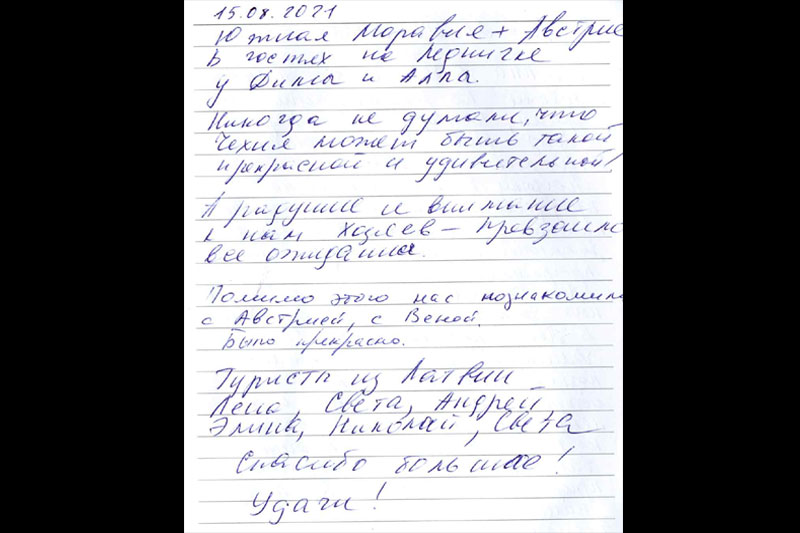 15.08.2021
Южная Моравия + Австрия
В гостях на Леднице
у Димы и Алла.
Никогда не думали, что
Чехия может быть такой
прекрасной и удивительной!
А радушие и внимание
к нам хозяев – превзошло
все ожидания.
Помимо этого нас познакомили
с Австрией, с Веной.
Было прекрасно.
Туристы из Латвии
Лена, Света, Андрей
Элина, Николай, Света
Спасибо большое!
Удачи!